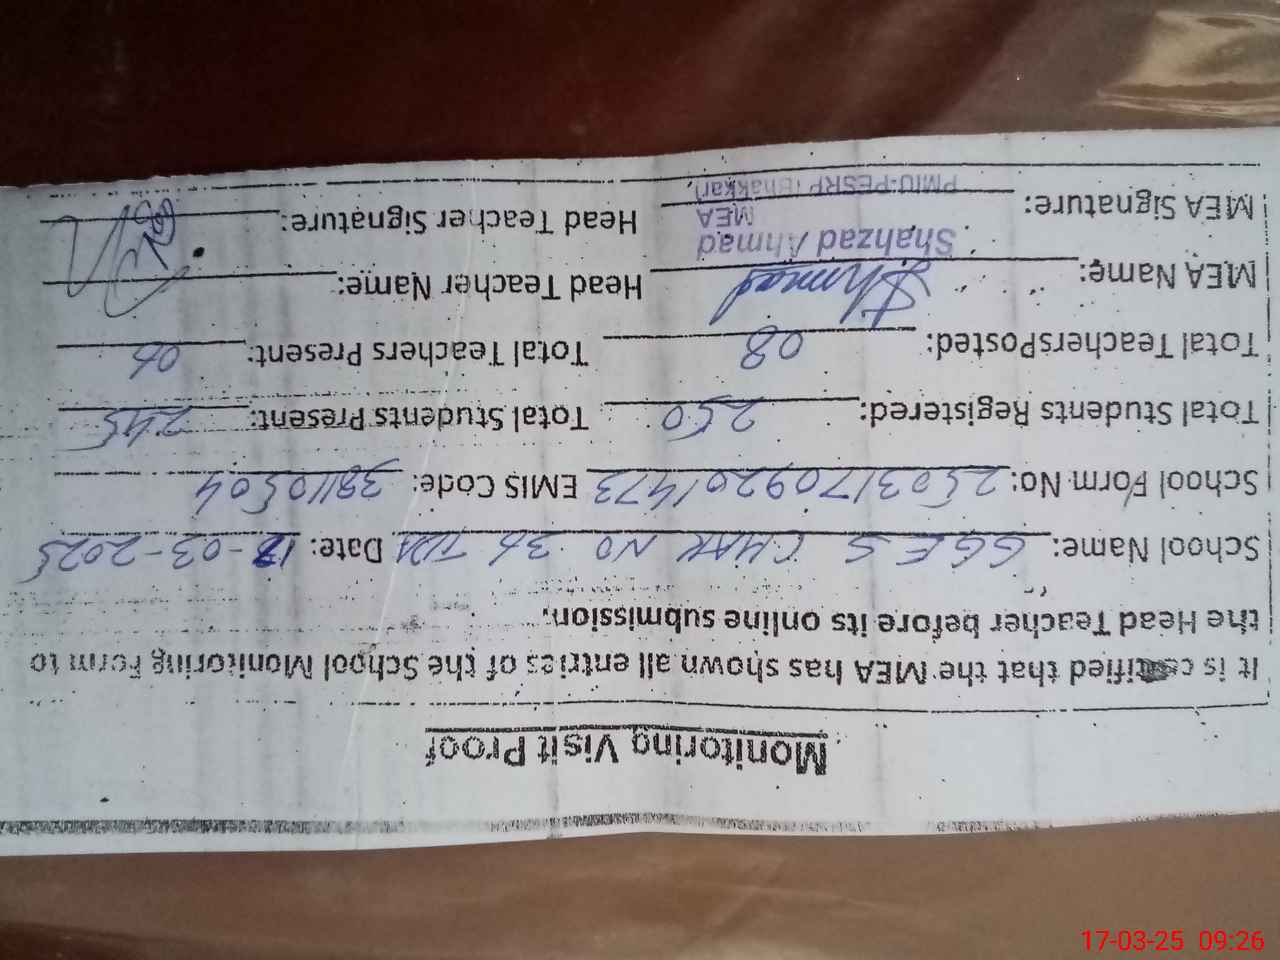 Monitoring Visit Proof
It is certified that the MEA has shown all entries of the School Monitoring Form to
the Head Teacher before its online submission.
School Name: GGES CHAK NO 36 TDA Date: 17-03-2025
School Form No: 25031709201473 EMIS Code: 38110504
Total Students Registered: 250 Total Students Present: 245
Total TeachersPosted: 08 Total Teachers Present: 06
MEA Name: Ahmad Head Teacher Name:
Shahzad Ahmad
MEA
MEA Signature: Head Teacher Signature:
PMIU-PESRP (Bhakkar)
17-03-25 09:26